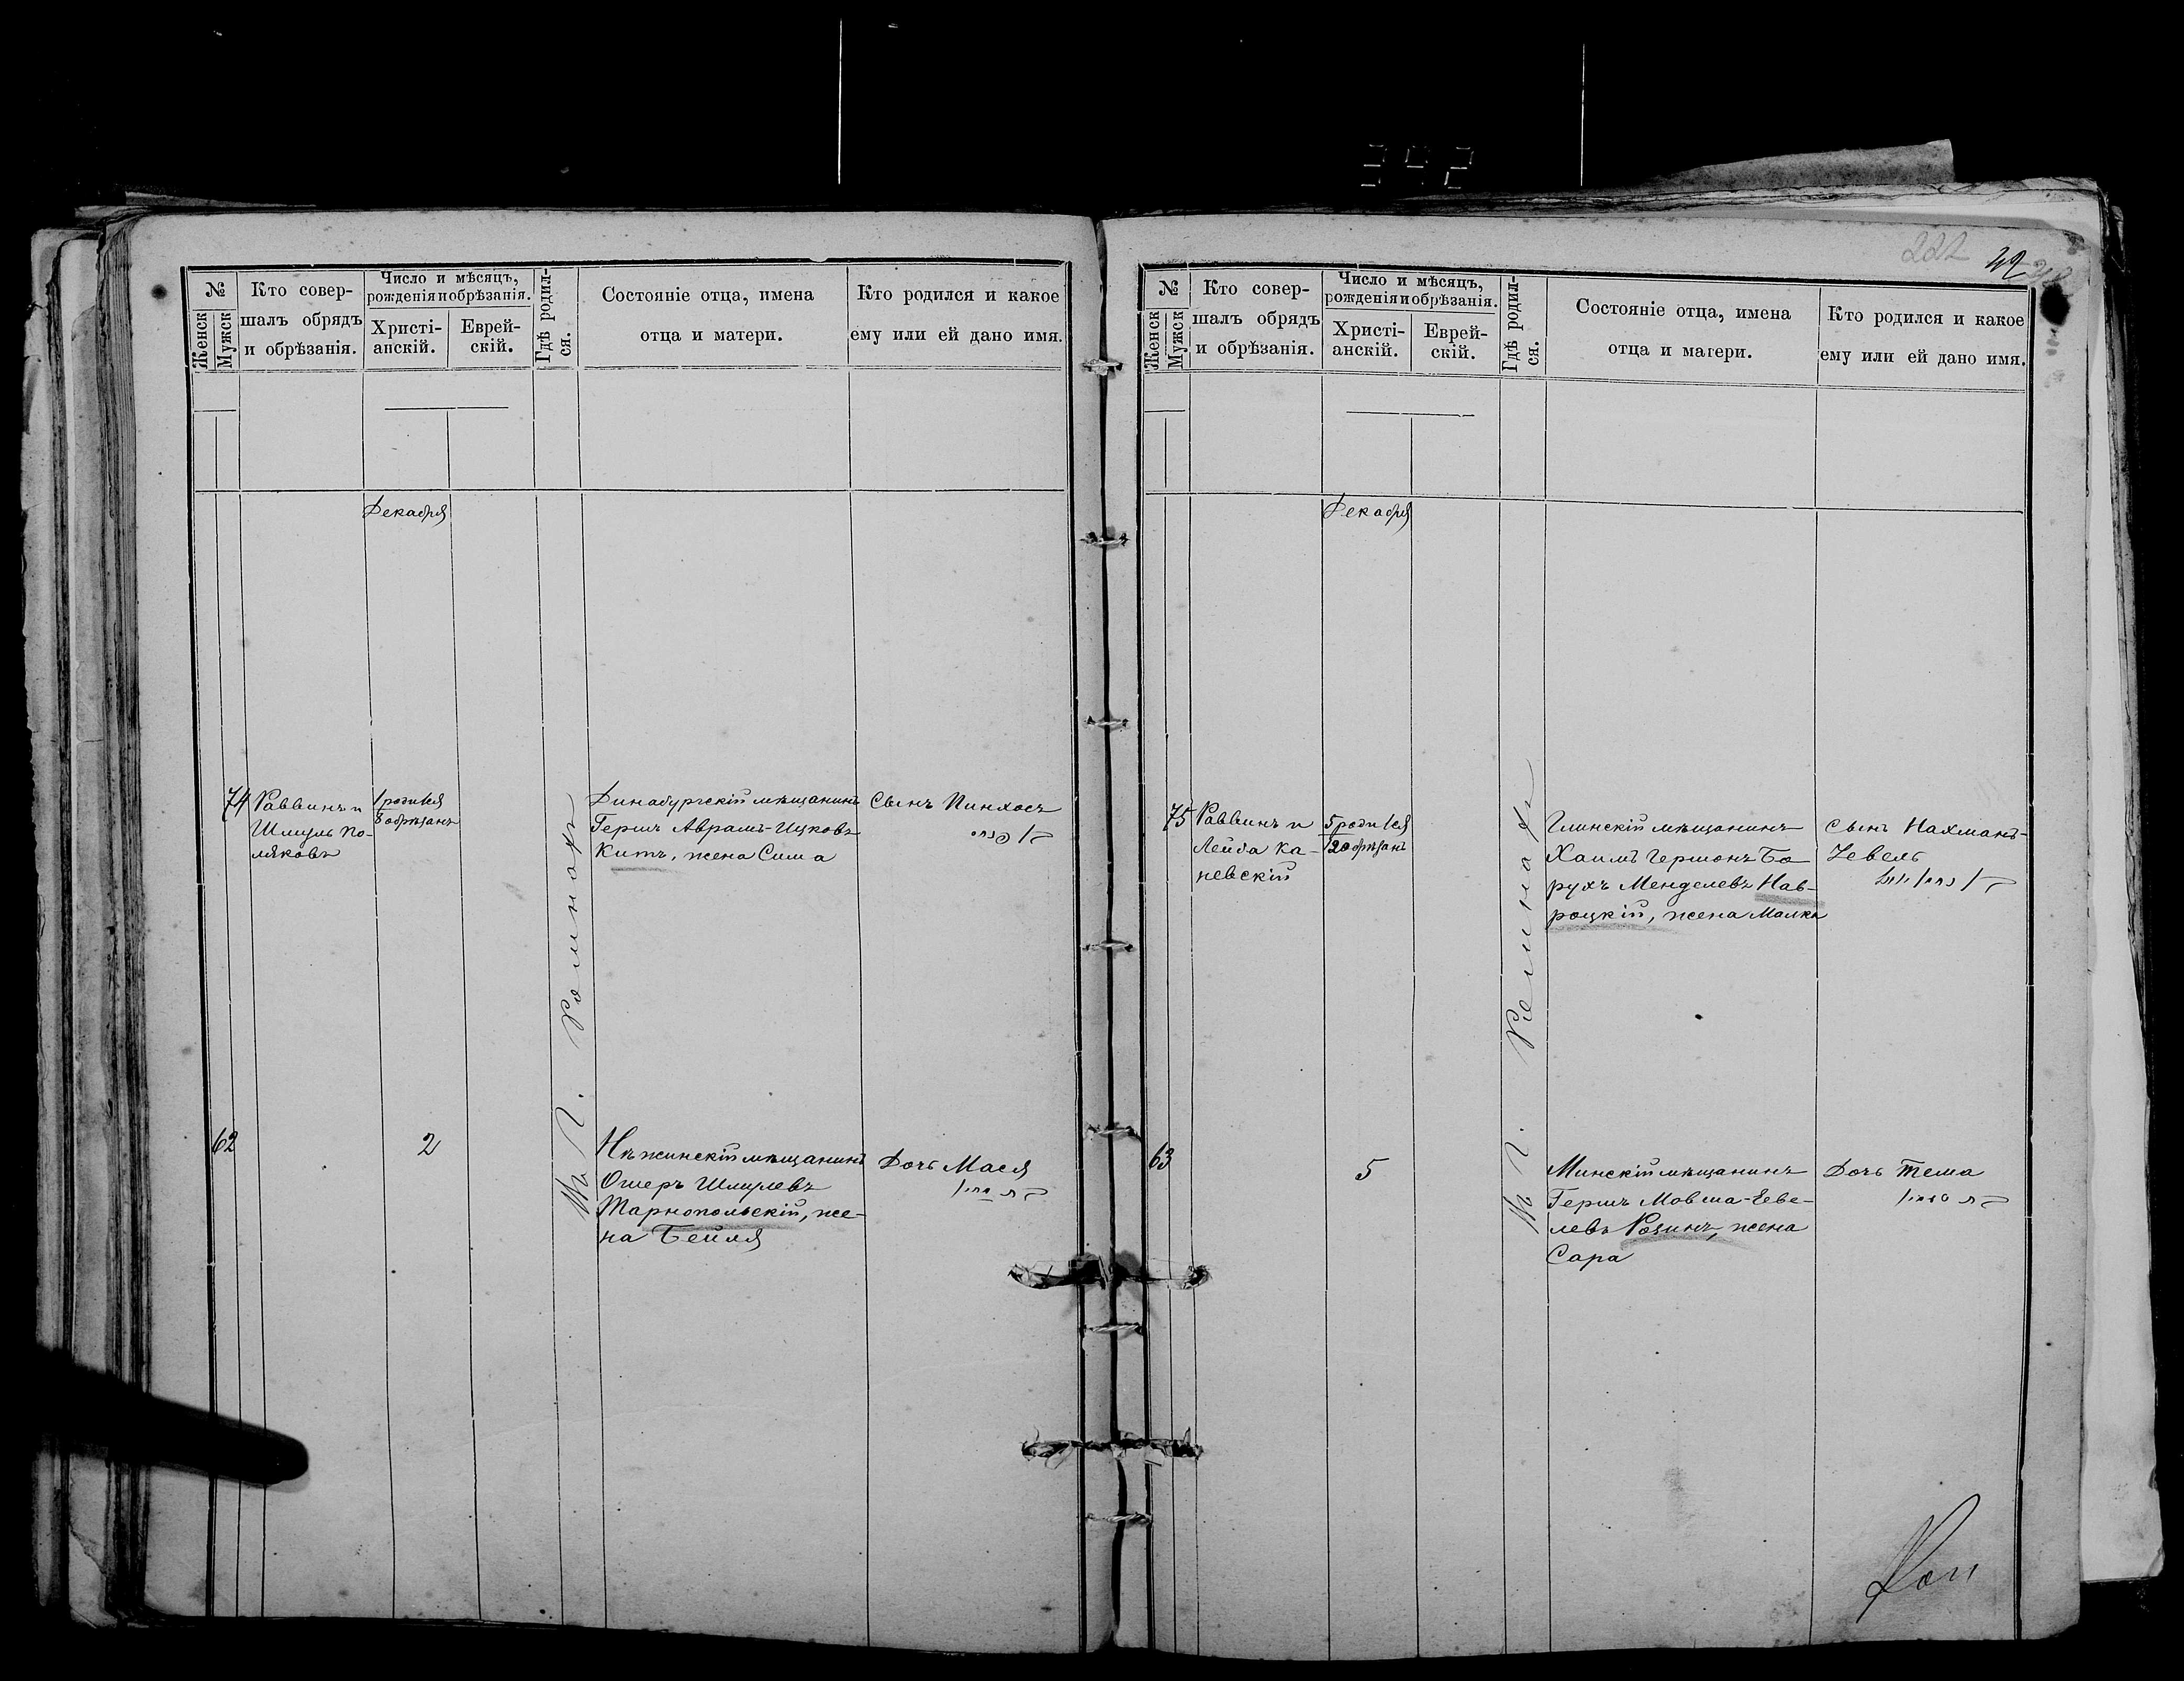 392
№
Женск
Мужск
Кто совер-
шалъ обрядъ
и обрѣзанія.
Число и мѣсяцъ,
рожденія и обрѣзанія.
Христі-
анскій.
Еврей-
скій.
Гдѣ родил-
ся.
Состояніе отца, имена
отца и матери.
Кто родился и какое
ему или ей дано имя.
Декабря
74
Раввинъ и
Шмуль По-
ляковъ
1 родился
8 обрѣзанъ
Въ г. Ромнахъ
Динабургскій мѣщанинъ
Гершъ Авраамъ-Ицковъ
Китъ, жена Сима
Сынъ Пинхосъ
62
2
Нѣжинскій мѣщанинъ
Ошеръ Шмулевъ
Тарнопольскій, же-
на Бейля
Дочь Мася
222
42
№
Женск
Мужск
Кто совер-
шалъ обрядъ
и обрѣзанія.
Число и мѣсяцъ,
рожденія и обрѣзанія.
Христі-
анскій.
Еврей-
скій.
Гдѣ родил-
ся.
Состояніе отца, имена
отца и матери.
Кто родился и какое
ему или ей дано имя.
Декабря
75
Раввинъ и
Лейба Ка-
невскій
5 родился
обрѣзанъ
Въ г. Ромнахъ
Глинскій мѣщанинъ
Хаимъ Гершонъ Бо
рухъ Менделевъ Нав-
роцкій, жена Малка
Сынъ Нахманъ-
Зевель
63
5
Минскій мѣщанинъ
Гершъ Мовша-Зеве-
левъ Розинъ, жена
Сара
Дочь Тема